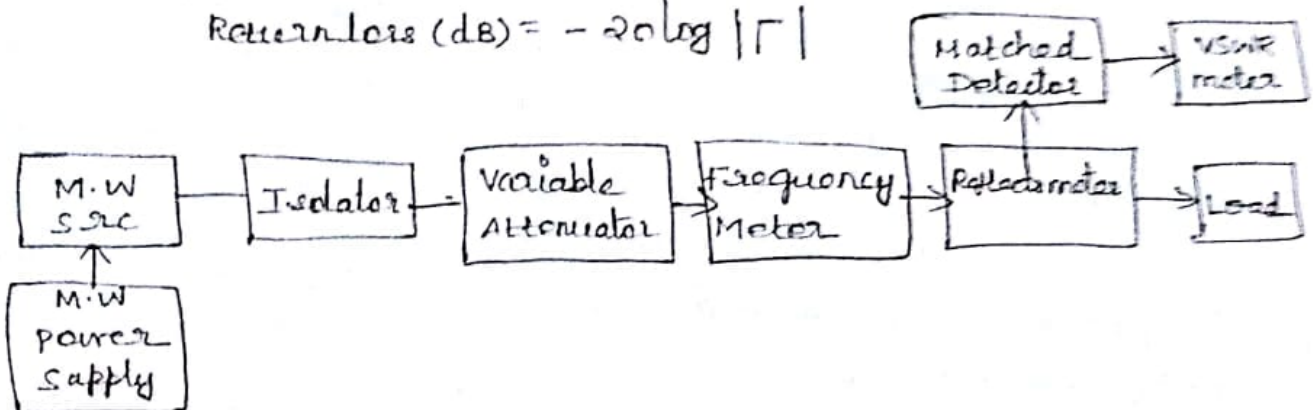 Return loss (dB) = - 20 log |Γ|
Matched
Detector
VSWR
meter
M.W
Src
Isolator
Variable
Attenuator
Frequency
Meter
Reflectometer
Load
M.W
power
Sapply